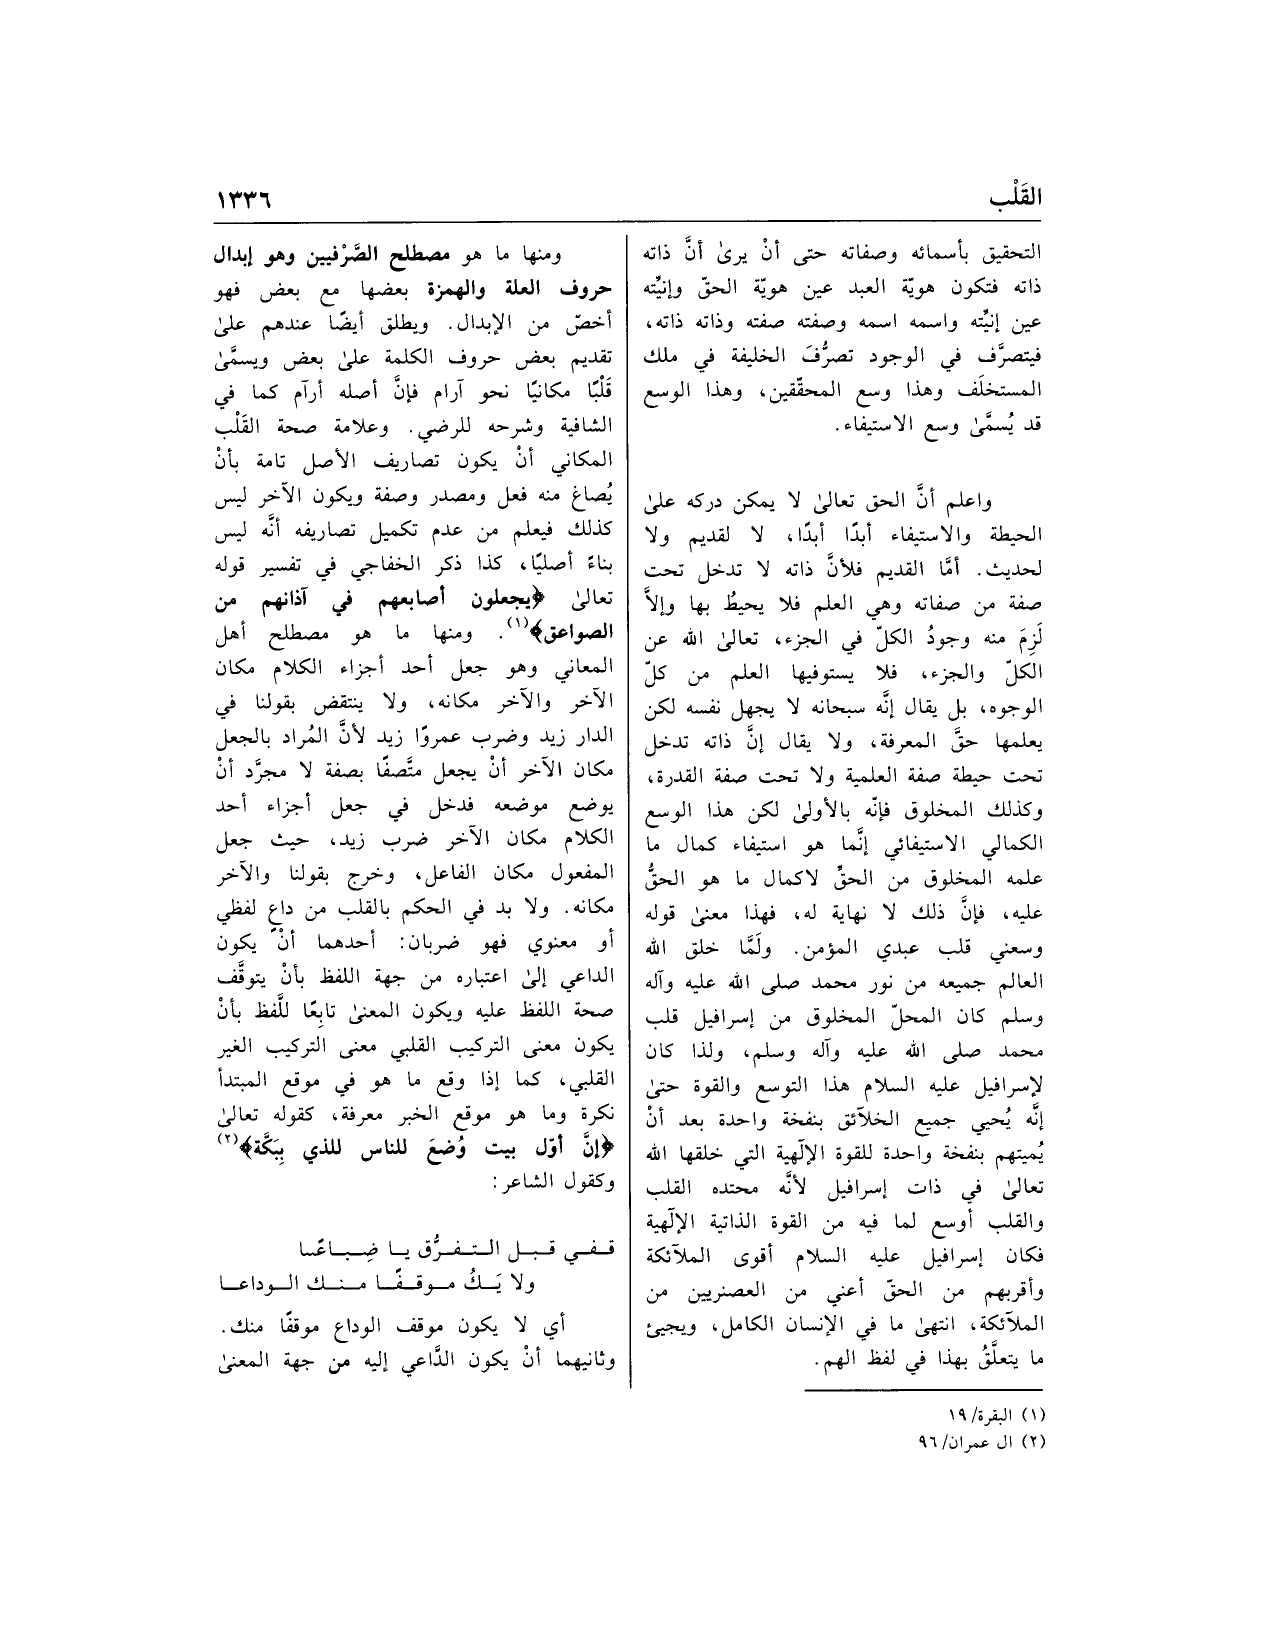 القَلْب
١٣٣٦
التحقيق بأسمائه وصفاته حتى أنْ يرىٰ أنَّ ذاته
ذاته فتكون هويّة العبد عين هويّة الحقّ وإنيَّته
عين إنيَّته واسمه اسمه وصفته صفته وذاته ذاته،
فيتصرَّف في الوجود تصرُّفَ الخليفة في ملك
المستخلَف وهذا وسع المحقّقين، وهذا الوسع
قد يُسمَّىٰ وسع الاستيفاء.
واعلم أنَّ الحق تعالىٰ لا يمكن دركه علىٰ
الحيطة والاستيفاء أبدًا أبدًا، لا لقديم ولا
لحديث. أمَّا القديم فلأنَّ ذاته لا تدخل تحت
صفة من صفاته وهي العلم فلا يحيطُ بها وإلاَّ
لَزِمَ منه وجودُ الكلّ في الجزء، تعالىٰ الله عن
الكلّ والجزء، فلا يستوفيها العلم من كلّ
الوجوه، بل يقال إنَّه سبحانه لا يجهل نفسه لكن
يعلمها حقَّ المعرفة، ولا يقال إنَّ ذاته تدخل
تحت حيطة صفة العلمية ولا تحت صفة القدرة،
وكذلك المخلوق فإنّه بالأولىٰ لكن هذا الوسع
الكمالي الاستيفائي إنَّما هو استيفاء كمال ما
علمه المخلوق من الحقِّ لاكمال ما هو الحقُّ
عليه، فإنَّ ذلك لا نهاية له، فهذا معنىٰ قوله
وسعني قلب عبدي المؤمن. ولَمَّا خلق الله
العالم جميعه من نور محمد صلى الله عليه وآله
وسلم كان المحلّ المخلوق من إسرافيل قلب
محمد صلى الله عليه وآله وسلم، ولذا كان
لإسرافيل عليه السلام هذا التوسع والقوة حتىٰ
إنَّه يُحيي جميع الخلائق بنفخة واحدة بعد أنْ
يُميتهم بنفخة واحدة للقوة الإلٓهية التي خلقها الله
تعالىٰ في ذات إسرافيل لأنَّه محتده القلب
والقلب أوسع لما فيه من القوة الذاتية الإلٓهية
فكان إسرافيل عليه السلام أقوى الملآئكة
وأقربهم من الحقّ أعني من العصنريين من
الملآئكة، انتهىٰ ما في الإنسان الكامل، ويجيئ
ما يتعلَّقُ بهذا في لفظ الهم.
ومنها ما هو مصطلح الصَّرْفيين وهو إبدال
حروف العلة والهمزة بعضها مع بعض فهو
أخصّ من الإبدال. ويطلق أيضًا عندهم علىٰ
تقديم بعض حروف الكلمة علىٰ بعض ويسمَّىٰ
قَلْبًا مكانيًا نحو آرام فإنَّ أصله أرآم كما في
الشافية وشرحه للرضي. وعلامة صحة القَلْب
المكاني أنْ يكون تصاريف الأصل تامة بأنْ
يُصاغ منه فعل ومصدر وصفة ويكون الآخر ليس
كذلك فيعلم من عدم تكميل تصاريفه أنَّه ليس
بناءً أصليًا، كذا ذكر الخفاجي في تفسير قوله
تعالىٰ ﴿يجعلون أصابعهم في آذانهم من
الصواعق﴾(١). ومنها ما هو مصطلح أهل
المعاني وهو جعل أحد أجزاء الكلام مكان
الآخر والآخر مكانه، ولا ينتقض بقولنا في
الدار زيد وضرب عمروًا زيد لأنَّ المُراد بالجعل
مكان الآخر أنْ يجعل متَّصفًا بصفة لا مجرَّد أنْ
يوضع موضعه فدخل في جعل أجزاء أحد
الكلام مكان الآخر ضرب زيد، حيث جعل
المفعول مكان الفاعل، وخرج بقولنا والآخر
مكانه. ولا بد في الحكم بالقلب من داعٍ لفظي
أو معنوي فهو ضربان: أحدهما أنْ يكون
الداعي إلىٰ اعتباره من جهة اللفظ بأنْ يتوقَّف
صحة اللفظ عليه ويكون المعنىٰ تابِعًا للَّفظ بأنْ
يكون معنى التركيب القلبي معنى التركيب الغير
القلبي، كما إذا وقع ما هو في موقع المبتدأ
نكرة وما هو موقع الخبر معرفة، كقوله تعالىٰ
﴿إنَّ أوّل بيت وُضعَ للناس للذي بِبَكَّة﴾(٢)
وكقول الشاعر:
قـفـي قـبـل الـتـفـرُّق يـا ضِـبـاعًـا
ولا يَـكُ مـوقـفًـا مـنـك الـوداعـا
أي لا يكون موقف الوداع موقفًا منك.
وثانيهما أنْ يكون الدَّاعي إليه من جهة المعنىٰ
(١) البقرة/ ١٩
(٢) ال عمران/ ٩٦